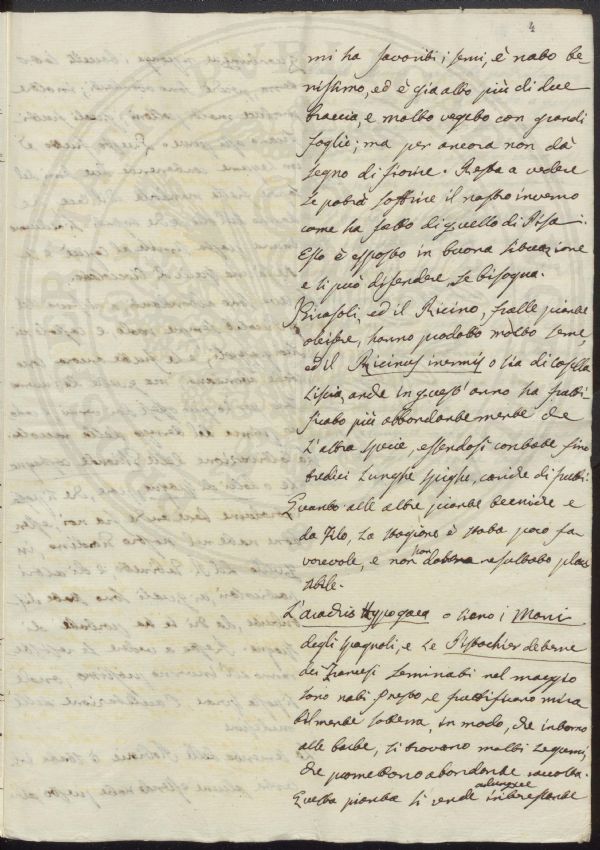 4
mi ha favoriti i semi, è nato be-
nissimo, ed è gia alto più di due
braccia, e molto vegeto con grandi
foglie; ma per ancora non dà
segno di fiorire. Resta a vedere
se potrà soffrire il nostro inverno
come ha fatto di quello di Pisa.
Esso è esposto in buona situazione
e si può difendere, se bisogna.
I Girasoli, ed il Ricino, fralle piante
oleifere, hanno prodotto molto seme,
ed il Ricinus inermis o sia di Casella
Liscia, anche in quest' anno ha frutti-
ficato più abbondantemente che
l'altra specie, essendosi contate fino
tredici lunghe spighe, cariche di frutti.
Quanto alle altre piante tecniche e
da filo, la stagione è stata poco fa-
vorevole, e non hanno resultato plau-
sibile.
L'arachis Hypogaea o siano i Mani
degli Spagnoli, e le Pistochier de terre
dei Francesi seminati nel maggio
sono nati presto, e fruttificano mira-
bilmente sotterra, in modo, che intorno
alle barbe, si trovano molti legumi,
che promettono abondante raccolta.
Questa pianta si rende adunque interessante